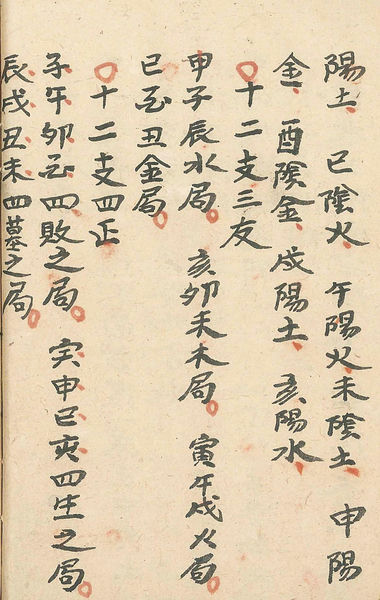 陽土 巳陰火 午陽火 未陰土 申陽
金 酉陰金 戌陽土 亥陽水
○十二支三友
申子辰水局 亥卯未木局 寅午戌火局
巳酉丑金局
○十二支四正
子午卯酉四敗之局 寅申巳亥四生之局
辰戌丑未四墓之局